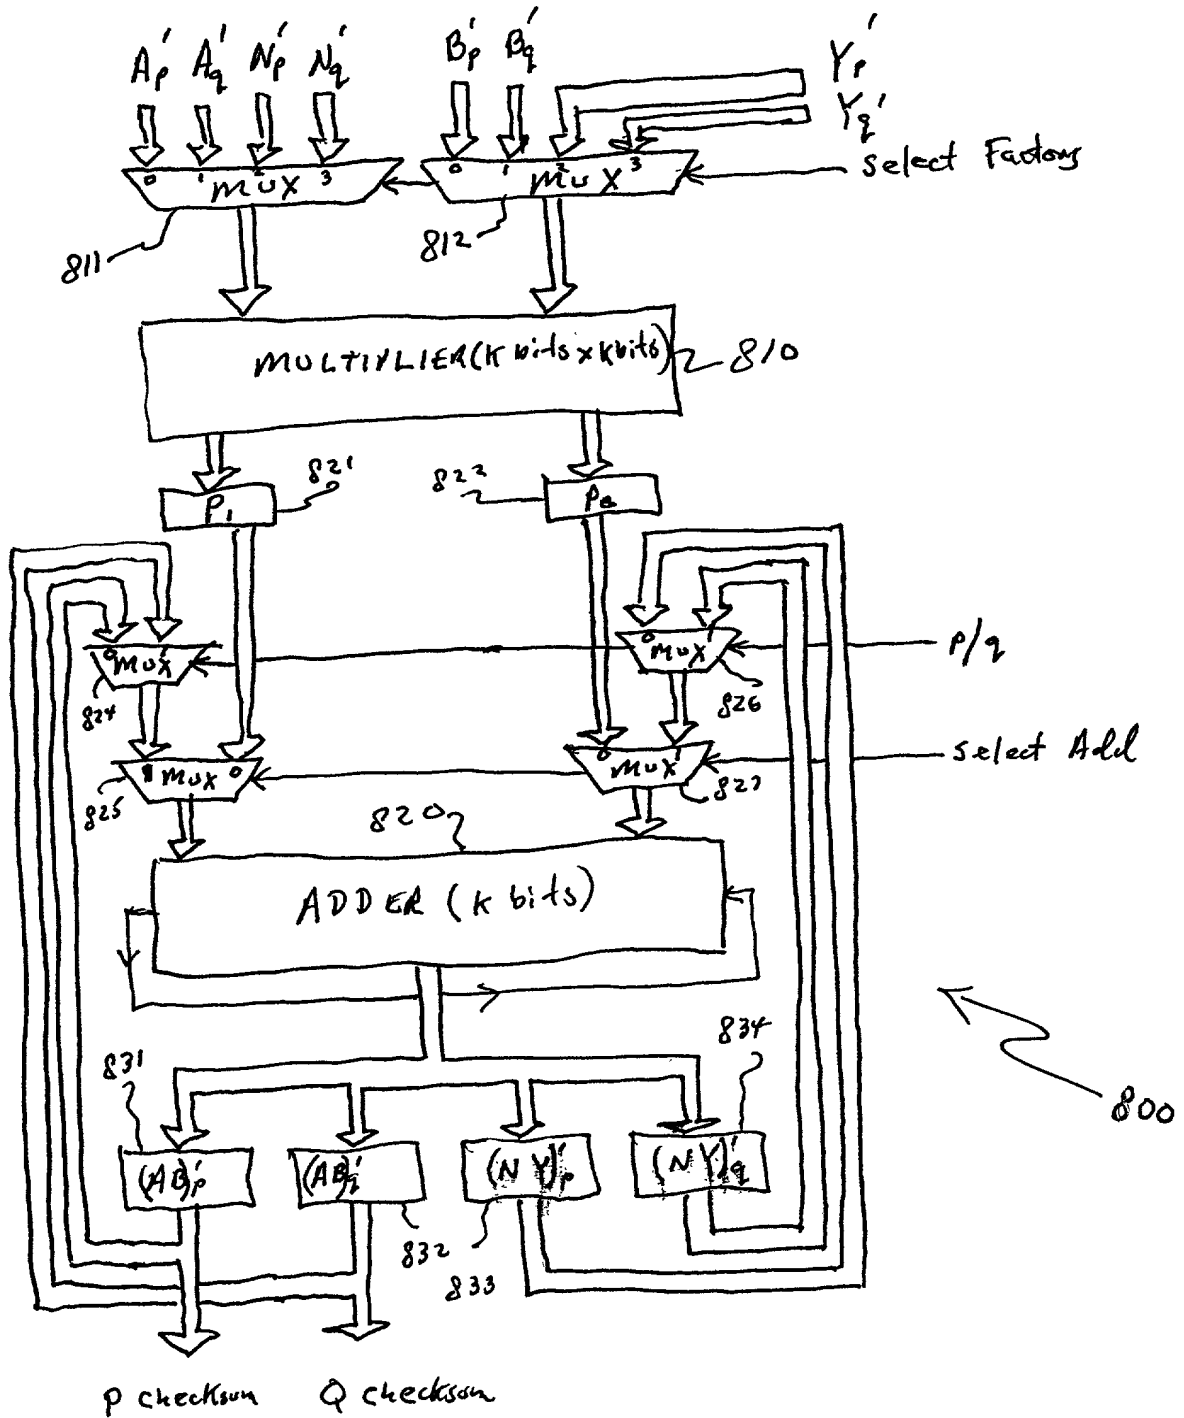 A'p A'q N'p N'q B'p B'q Y'p
Y'q
Select Factors
0 1 2 3 MUX
0 1 2 3 MUX
811
812
MULTIPLIER (K bits x K bits)
810
821
822
P1
P0
0 MUX 1
0 MUX 1
P/q
824
826
1 MUX 0
0 MUX 1
Select Add
825
827
820
ADDER (K bits)
831
834
800
(AB)'p
(AB)'q
(NY)'p
(NY)'q
832
833
P checksum
Q checksum